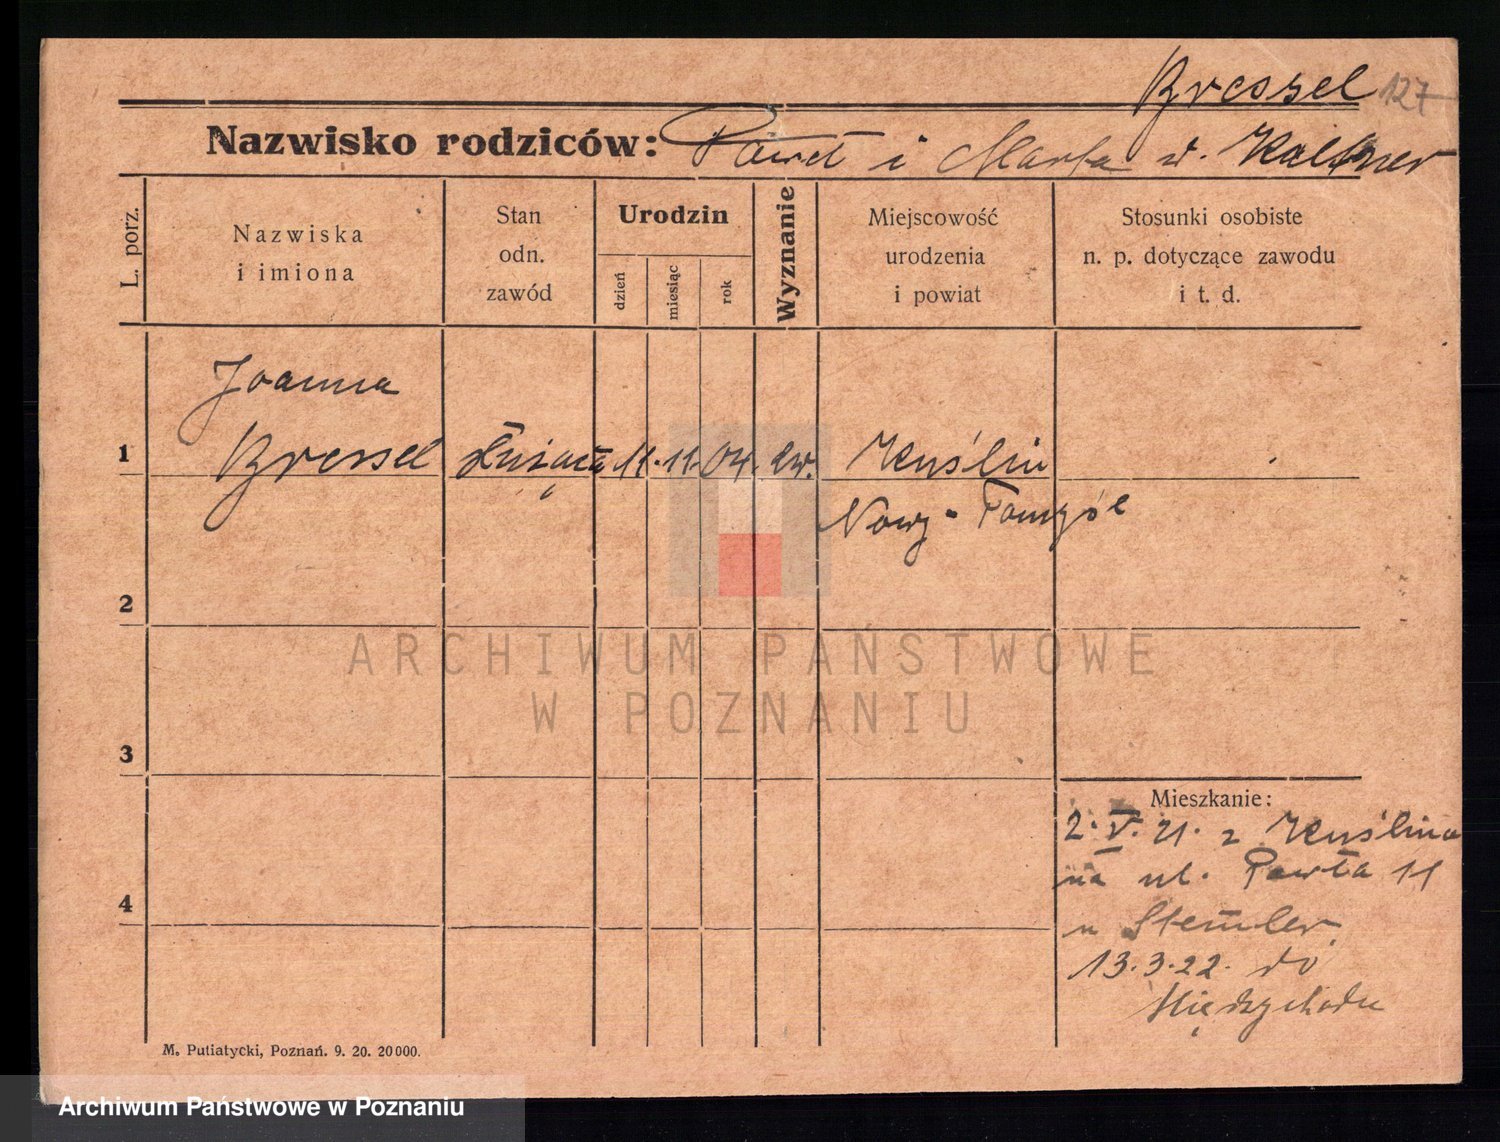 Bressel 127
Nazwisko rodziców: Paweł i Marta z.
L. porz.
Nazwiska
i imiona
Stan
odn.
zawód
Urodzin
dzień
miesiąc
rok
Wyznanie
Miejscowość
urodzenia
i powiat
Stosunki osobiste
n. p. dotyczące zawodu
i t. d.
Joanna
1 Bressel służąca 11. 11. 04. ew. Kuślin
Nowy-Tomyśl
2
3
Mieszkanie:
2. V. 21. z Kuślina
na ul. Pawła 11
u Stemler
13.3.22. do
Międzychodu
4
M. Putiatycki, Poznań. 9. 20. 20 000.
ARCHIWUM PAŃSTWOWE
W POZNANIU
Archiwum Państwowe w Poznaniu